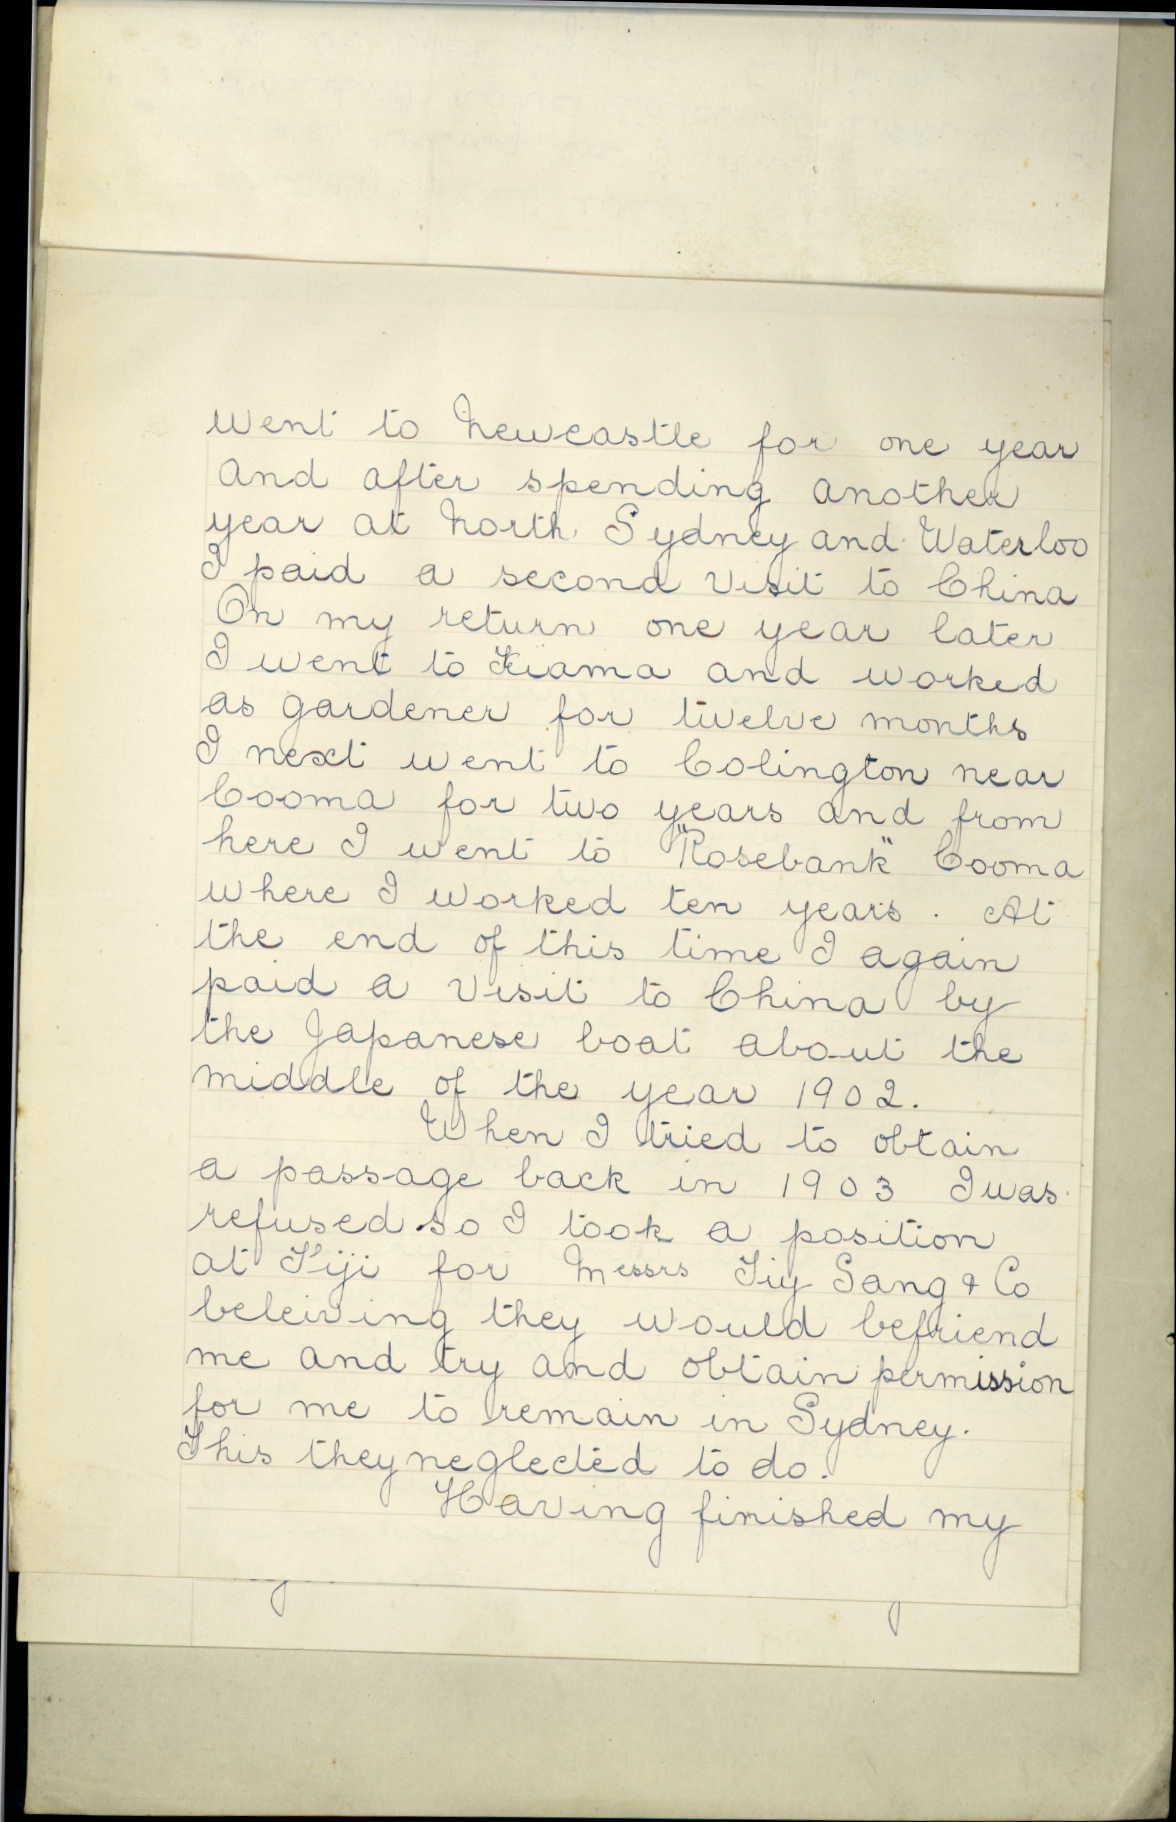 went to Newcastle for one year
and after spending another
year at North Sydney and Waterloo
I paid a second visit to China
On my return one year later
I went to Kiama and worked
as gardener for twelve months
I next went to Colington near
Cooma for two years and from
here I went to "Rosebank" Cooma
where I worked ten years. At
the end of this time I again
paid a visit to China by
the Japanese boat about the
middle of the year 1902.
When I tried to obtain
a passage back in 1903 I was
refused so I took a position
at Fiji for Messrs Tiy Sang & Co
beleiving they would befriend
me and try and obtain permission
for me to remain in Sydney.
This they neglected to do.
Having finished my